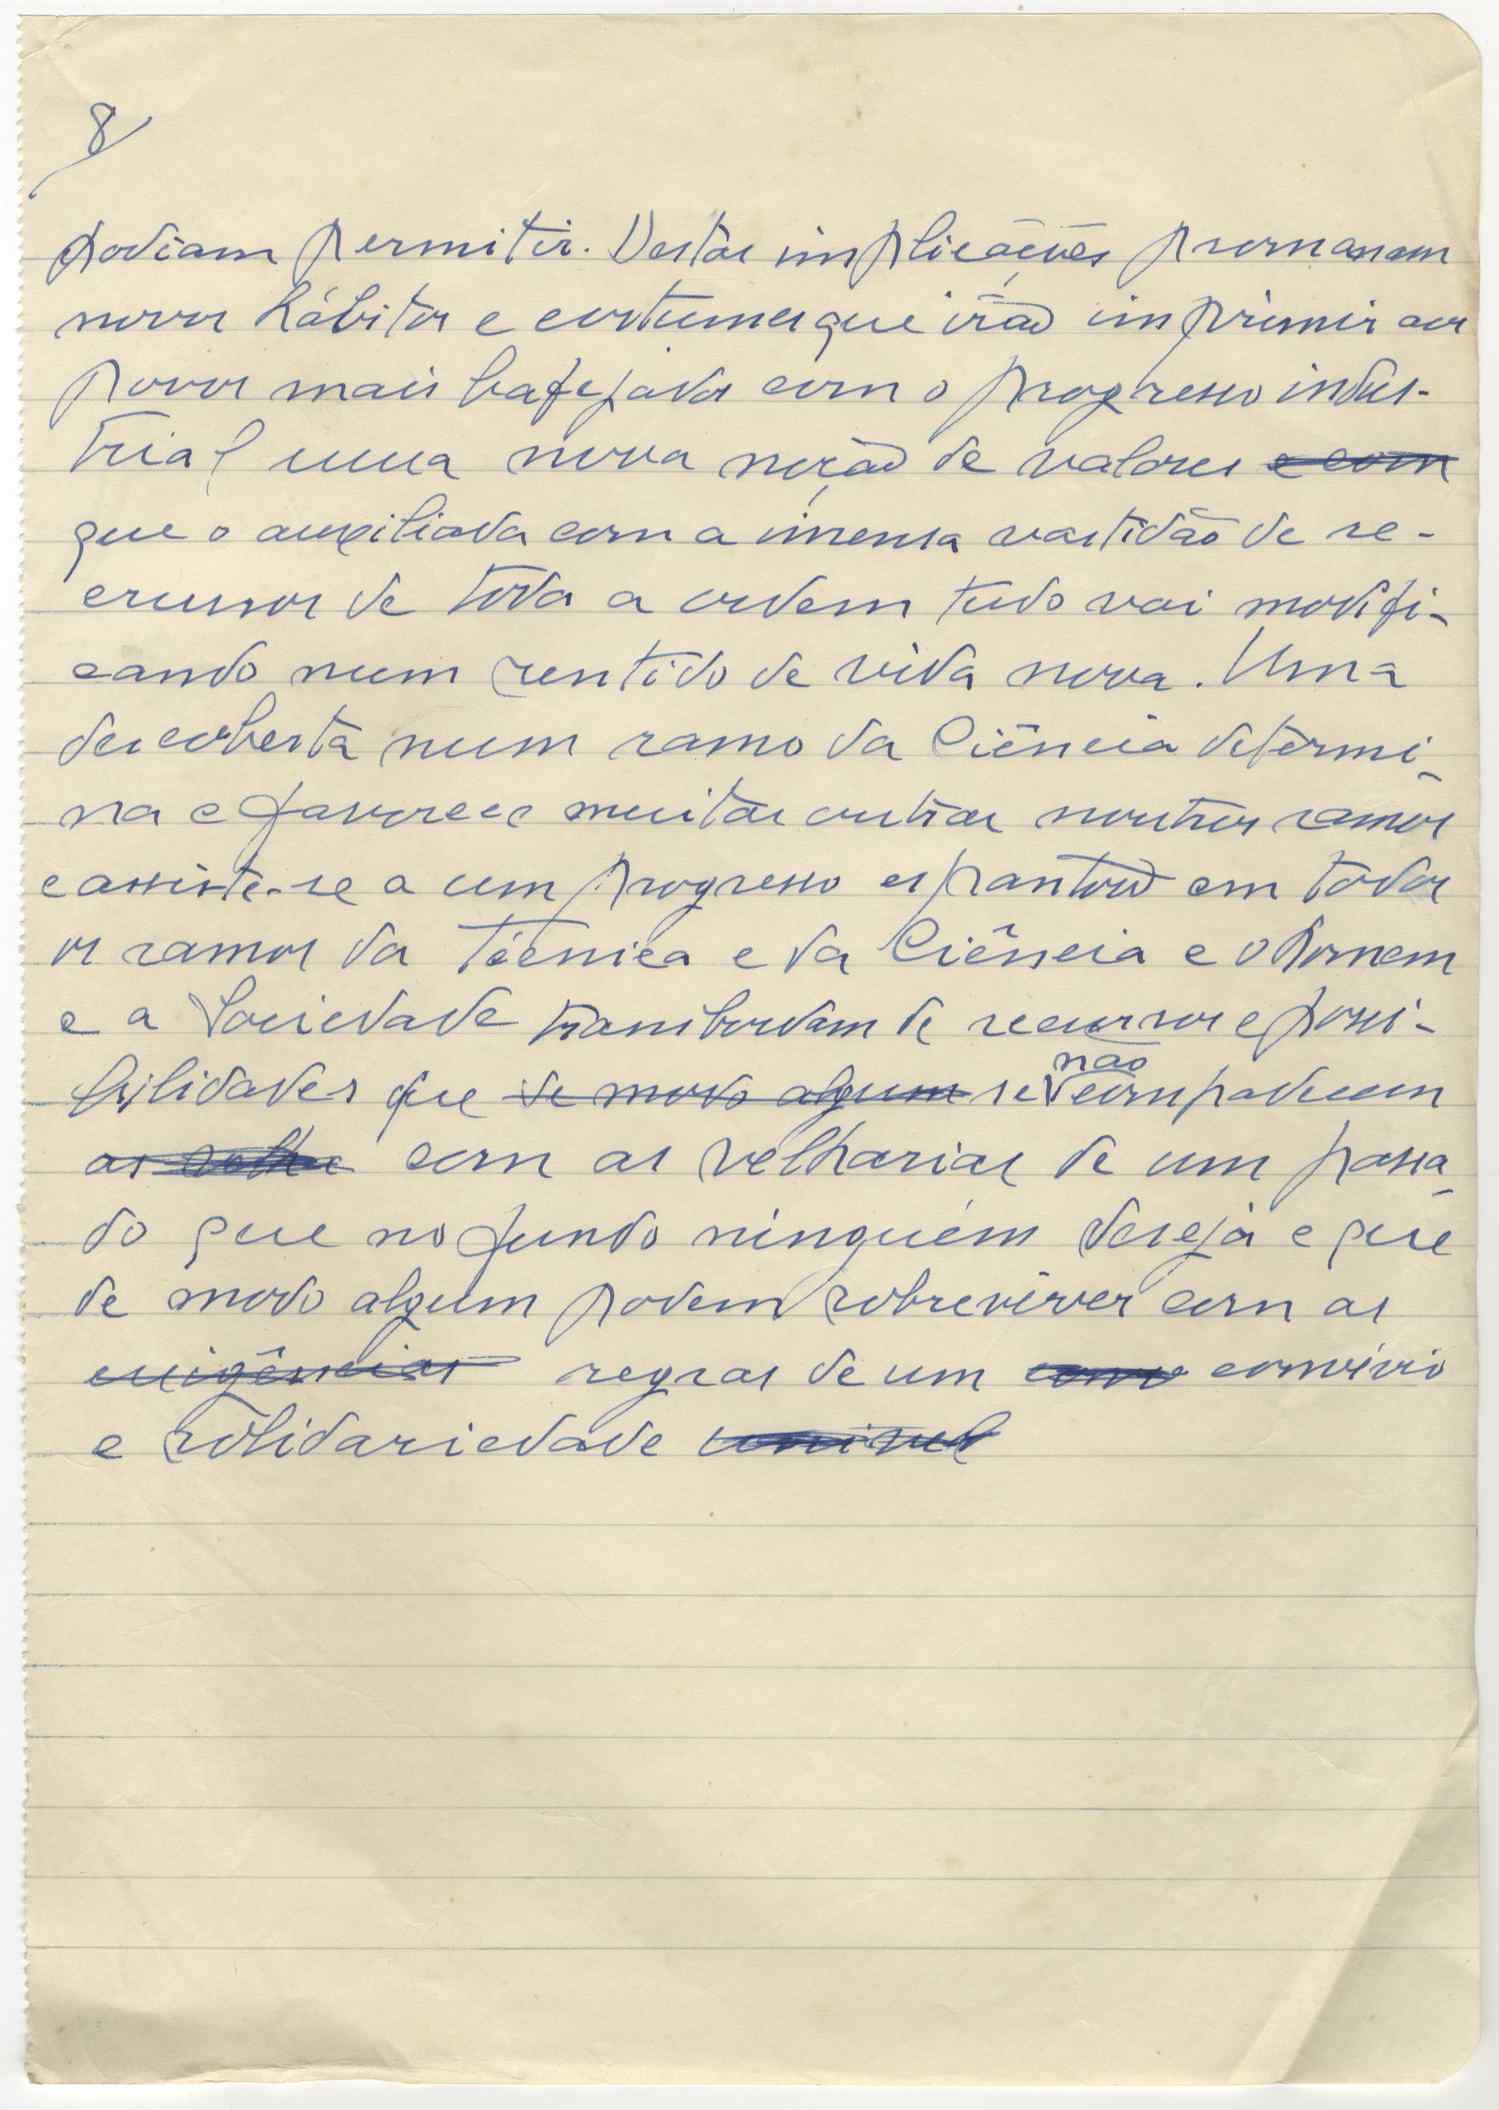 8
podiam permitir. Destas implicações promanam
novos hábitos e costumes que irão imprimir aos
povos mais bafejados com o progresso indus-
trial uma nova noção de valores e com
que o auxiliada com a imensa vastidão de re-
cursos de toda a ordem tudo vai modifi-
cando num sentido de vida nova. Uma
descoberta num ramo da Ciência determi-
na e favorece muitas outras noutros ramos
e assiste-se a um progresso espantoso em todos
os ramos da Técnica e da Ciência e o Homem
e a Sociedade transbordam de recursos e possi-
não
bilidades que de modo algum se compadecem
as velha com as velharias de um passa-
do que no fundo ninguém deseja e que
de modo algum podem sobreviver com as
exigências regras de um conv convívio
e solidariedade univel